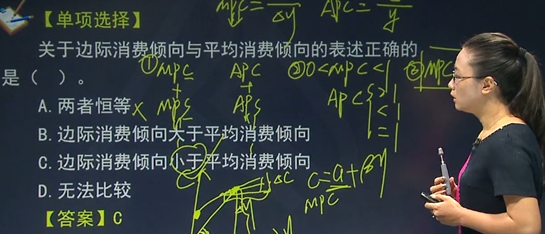 MPC = / Δy  APC = / y
【单项选择】
关于边际消费倾向与平均消费倾向的表述正确的
是（ ）。
① MPC APC ② 0<MPC<1 ③ MPC
A. 两者恒等 ×
APC >1 <1 =1
B. 边际消费倾向大于平均消费倾向
C. 边际消费倾向小于平均消费倾向
C=a+βy
MPC
D. 无法比较
【答案】C